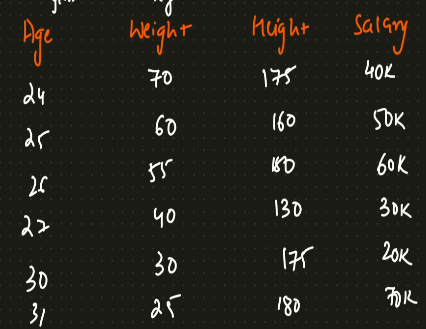 Age Weight Height Salary
24 70 175 40K
25 60 160 50K
26 55 60K
27 40 130 30K
30 30 175 20K
31 25 180 70K